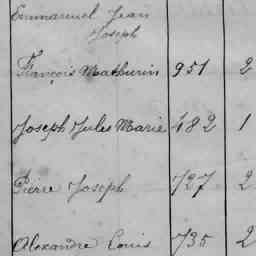 Emmanuel Jean
Joseph
François Mathurin 951 2
Joseph Jules Marie 482 1
Pierre Joseph 727 2
Alexandre Louis 735 2